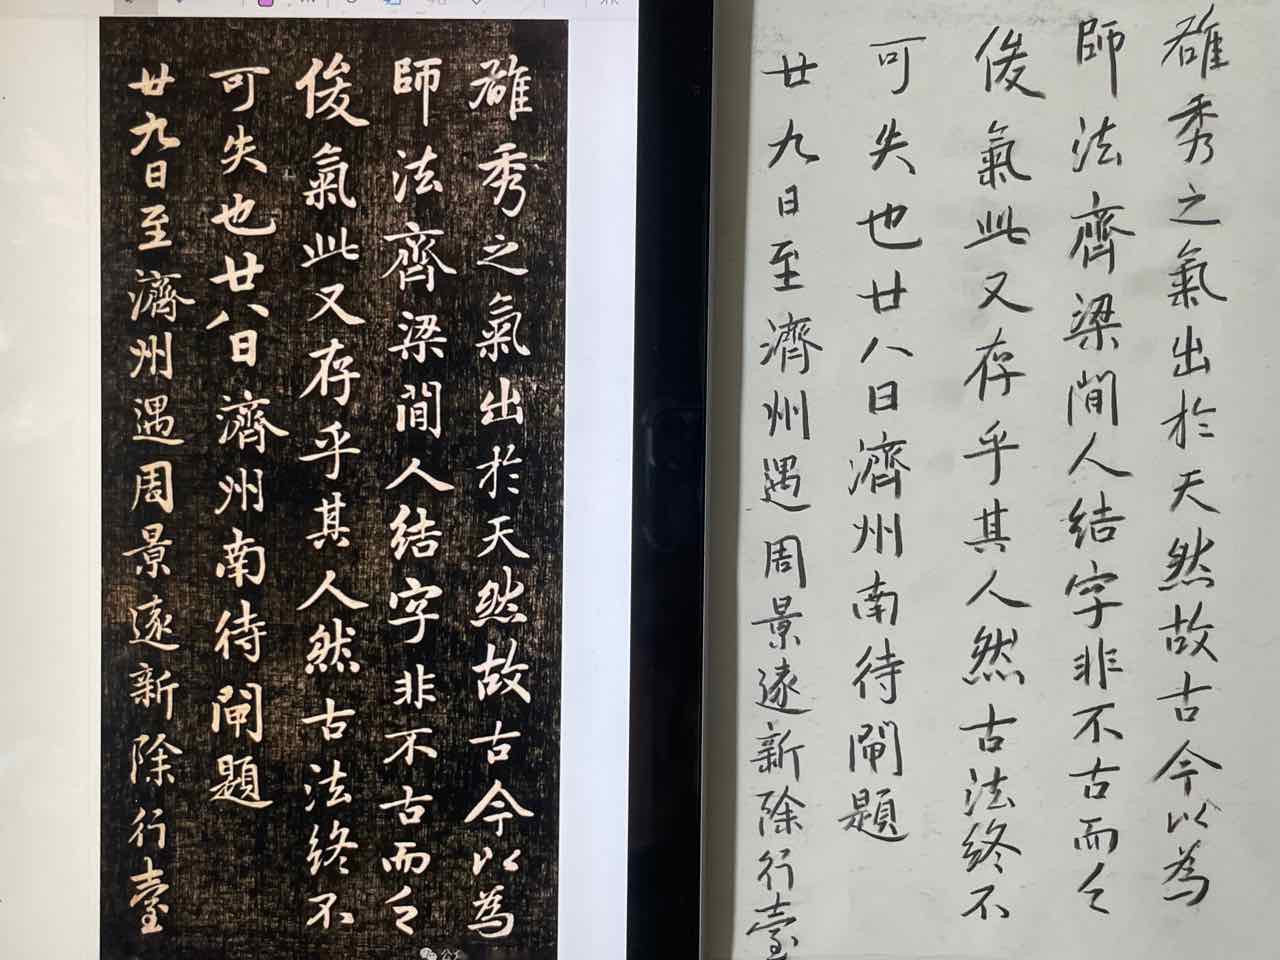 雄秀之氣出於天然故古今以為
師法齊梁間人結字非不古而乏
俊氣此又存乎其人然古法終不
可失也廿八日濟州南待閘題
廿九日至濟州遇周景遠新除行臺
雄秀之氣出於天然故古今以為
師法齊梁間人結字非不古而乏
俊氣此又存乎其人然古法終不
可失也廿八日濟州南待閘題
廿九日至濟州遇周景遠新除行臺